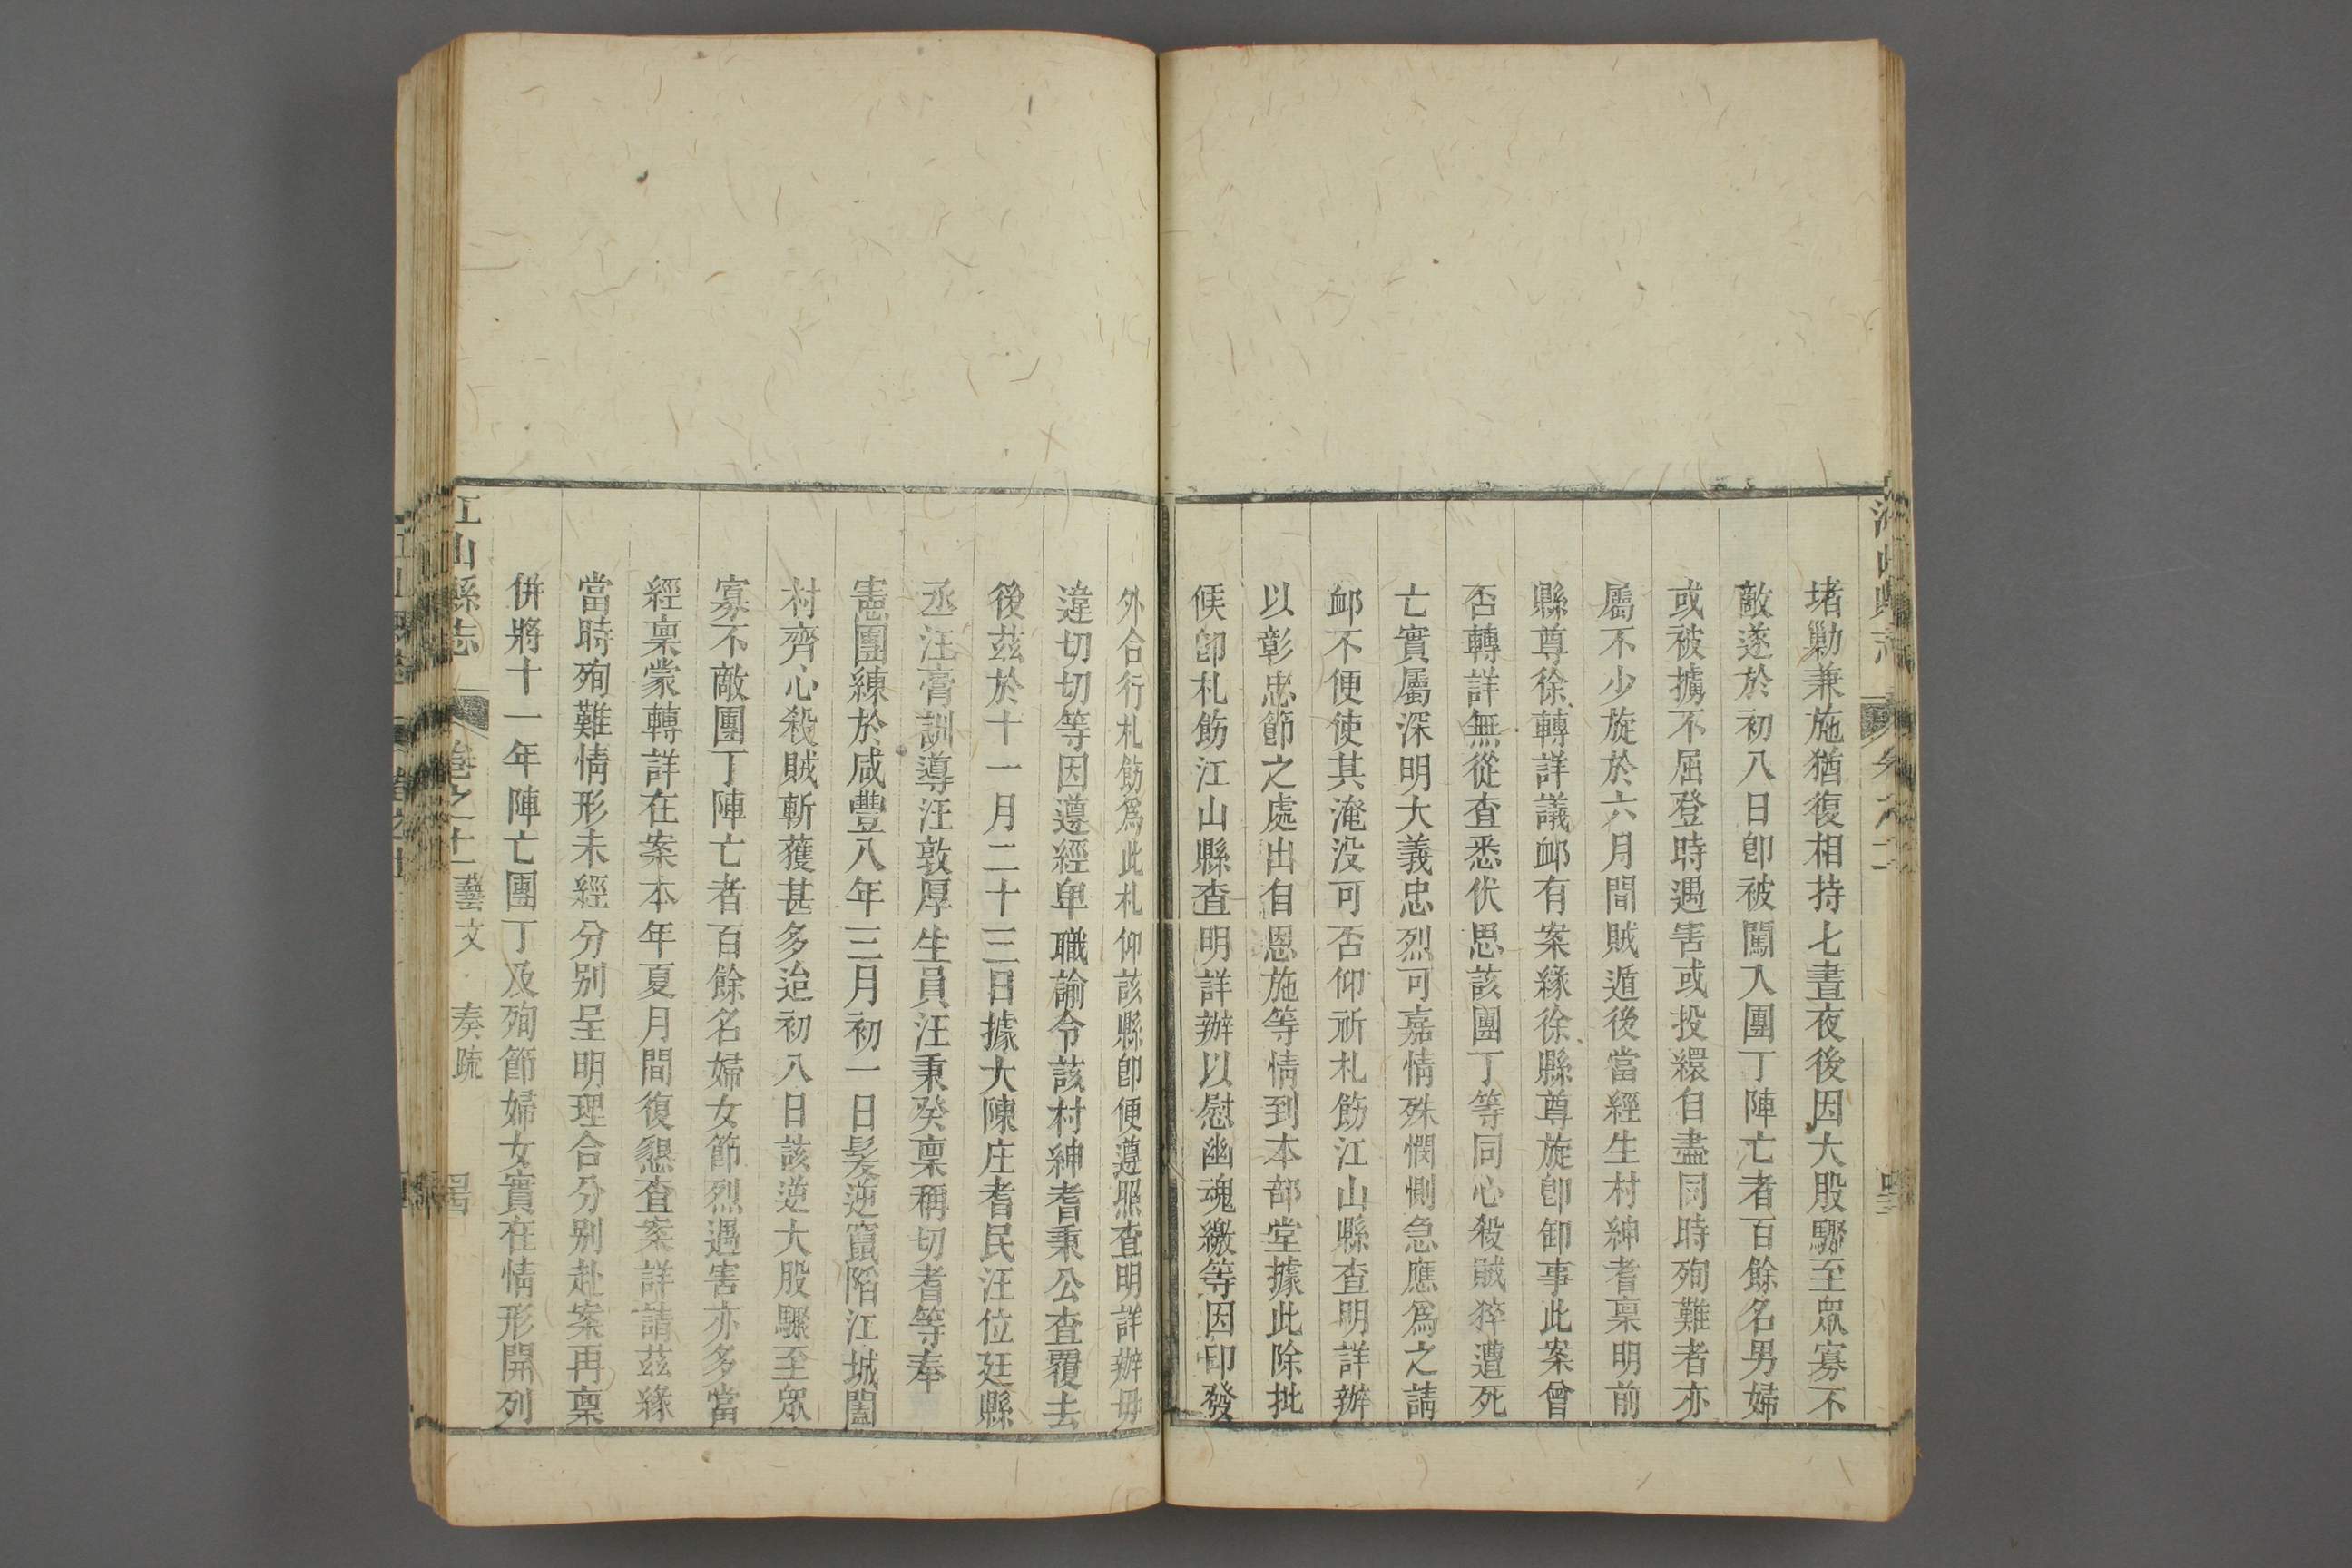 堵勦兼施猶復相持七晝夜後因大股驟至眾寡不
敵遂於初八日卽被闖入團丁陣亡者百餘名男婦
或被擄不屈登時遇害或投繯自盡同時殉難者亦
屬不少旋於六月間賊遁後當經生村紳耆稟明前
縣尊徐轉詳議䘏有案緣徐縣尊旋卽卸事此案曾
否轉詳無從查悉伏思該團丁等同心殺賊猝遭死
亡實屬深明大義忠烈可嘉情殊憫惻急應爲之請
䘏不便使其淹没可否仰祈札飭江山縣查明詳辦
以彰忠節之處出自恩施等情到本部堂據此除批
候卽札飭江山縣查明詳辦以慰幽魂繳等因印發
外合行札飭爲此札仰該縣卽便遵照查明詳辦毋
違切切等因遵經卑職諭令該村紳耆秉公查覆去
後茲於十一月二十三日據大陳庄耆民汪位廷縣
丞汪膏訓導汪敦厚生員汪秉癸稟稱切耆等奉
憲團練於咸豐八年三月初一日髮逆竄陷江城闔
村齊心殺賊斬獲甚多迨初八日該逆大股驟至眾
寡不敵團丁陣亡者百餘名婦女節烈遇害亦多當
經稟蒙轉詳在案本年夏月間復懇查案詳請茲緣
當時殉難情形未經分别呈明理合分别赴案再稟
併將十一年陣亡團丁及殉節婦女實在情形開列
江山縣志 卷之十一 藝文 奏疏